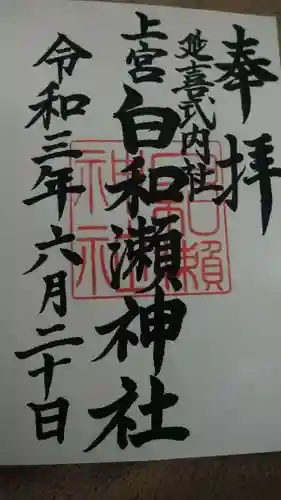 奉拝
延喜式内社
上宮
白和瀬神社
令和三年六月二十日